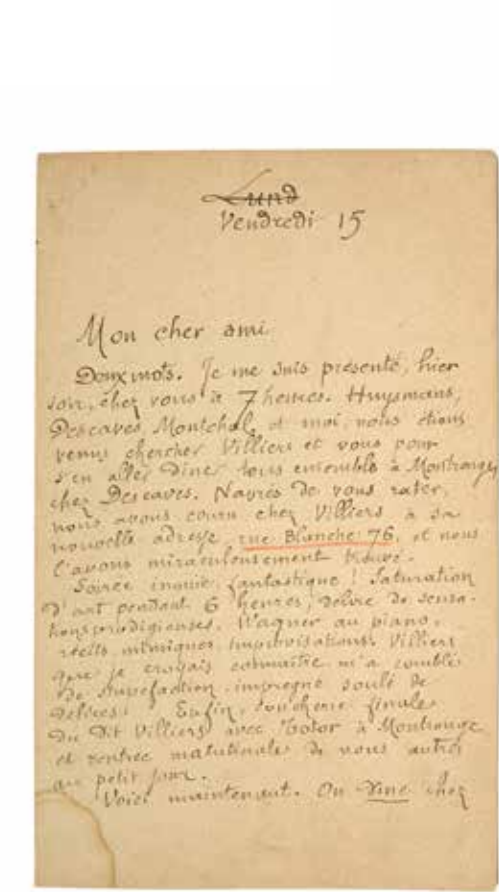 Lund
Vendredi 15
Mon cher ami
Deux mots. Je me suis présenté, hier
soir, chez vous à 7 heures. Huysmans,
Descaves, Montchal et moi, nous étions
venus chercher Villiers et vous pour
s'en aller diner tous ensemble à Montrouge,
chez Descaves. Navrés de vous rater,
nous avons couru chez Villiers à sa
nouvelle adresse rue Blanche 76, et nous
l'avons miraculeusement trouvé.
Soirée inouïe, fantastique ! Saturation
d'art pendant 6 heures, délire de sensa-
tions prodigieuses. Wagner au piano,
récits mimiques, improvisations. Villiers
que je croyais connaître m'a comblé
de stupéfaction, imprégné soulé de
délices. Enfin, coucherie finale
du dit Villiers avec Totor à Montrouge
et rentrée matutinale de nous autres
au petit jour.
Voici maintenant. On dine chez